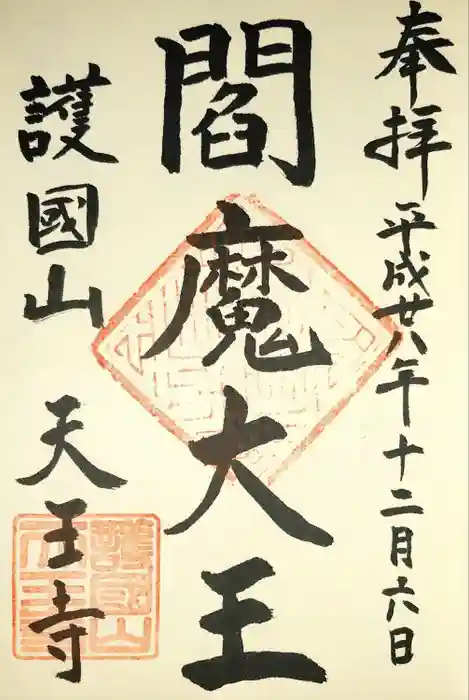 奉拝 平成廿八年十二月六日
閻魔大王
護國山 天王寺
護國山天王寺